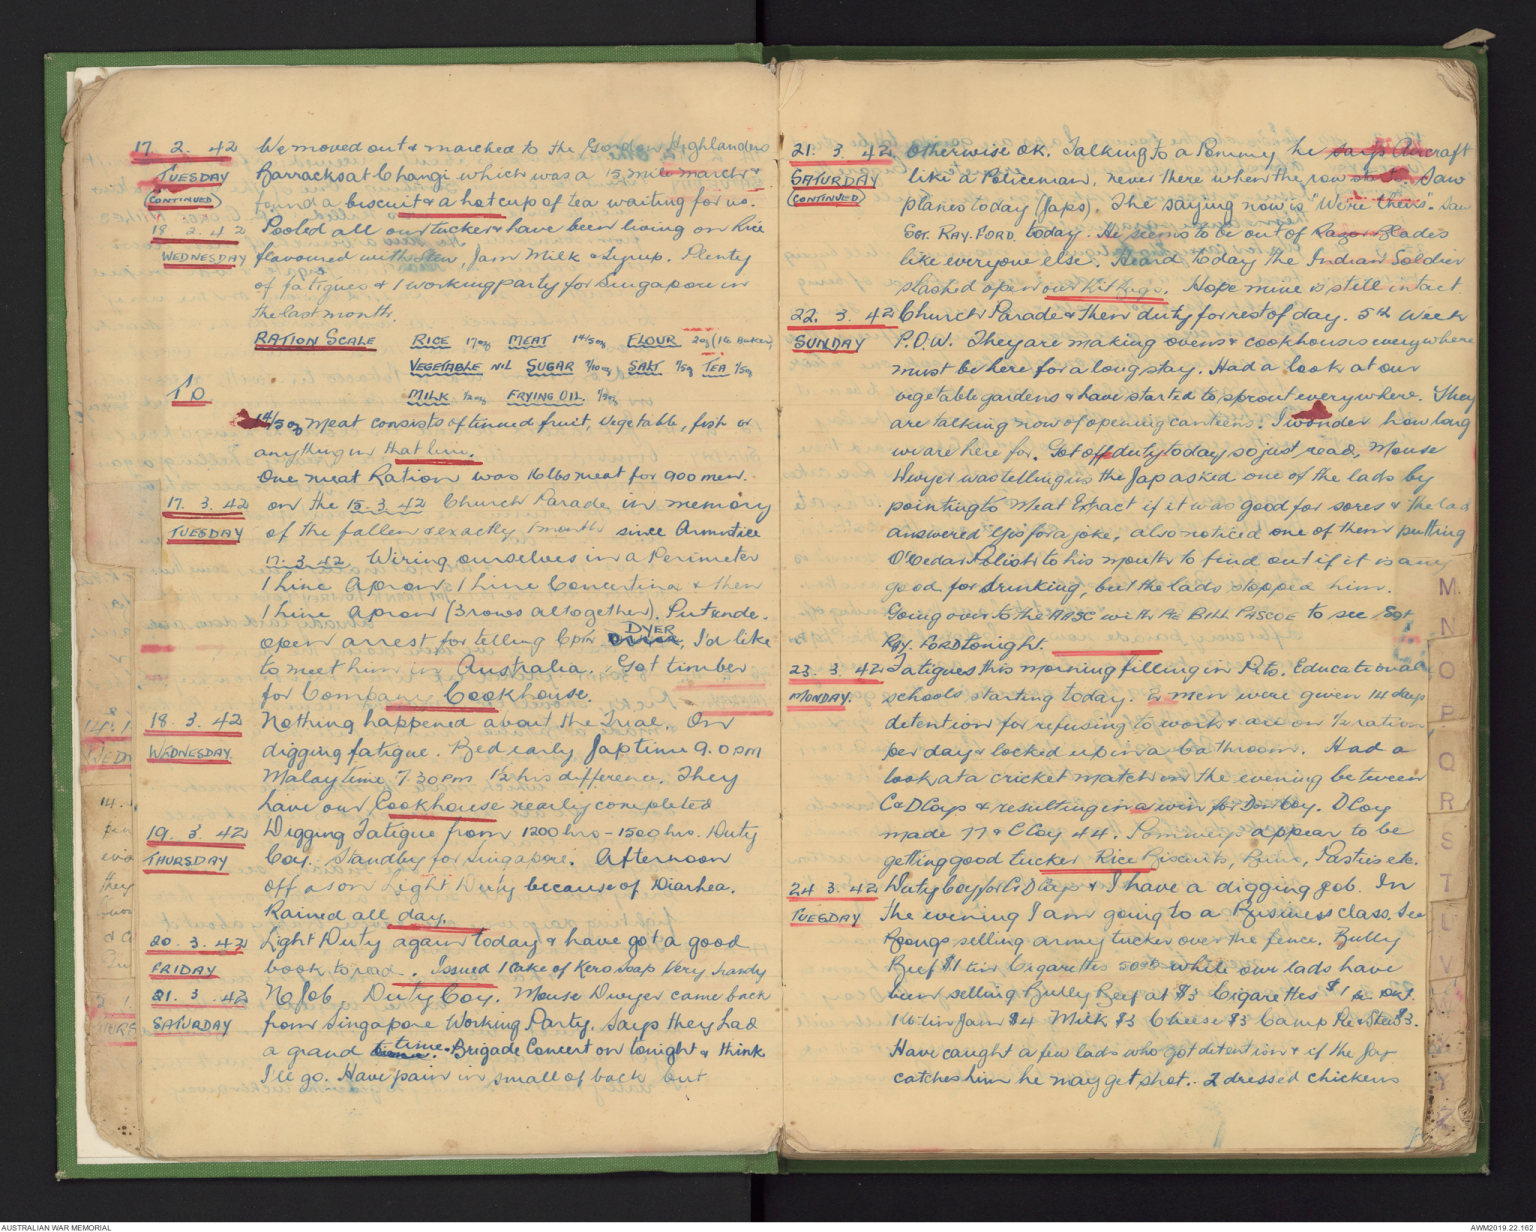 17. 2. 42 We moved out & marched to the Gordon Highlanders
TUESDAY Barracks at Changi which was a 15 mile march &
(CONTINUED) found a biscuit & a hot cup of tea waiting for us.
18. 2. 42 Pooled all our tucker & have been living on Rice
WEDNESDAY flavoured with Stew, Jam Milk & Syrup. Plenty
of fatigues & 1 working party for Singapore in
the last month.
RATION SCALE RICE 17 ozs MEAT 1 4/5 oz FLOUR 2 oz (
VEGETABLE NIL SUGAR 7/10 oz SALT 7/5 oz TEA 1/5 oz
TO MILK ½ oz FRYING OIL
1 4/5 oz Meat consists of tinned fruit, vegetable, fish or
anything in that line.
One meat Ration was 16 lbs meat for 900 men.
17. 3. 42 On the 15. 3. 42 Church Parade in memory
TUESDAY of the fallen & exactly 1 month since Armistice
17. 3. 42 Wiring ourselves in a Perimeter
1 Line Apron, 1 Line Concertina & then
1 Line apron (3 rows altogether). Put under
open arrest for telling Cpm DYER, I'd like
to meet him in Australia. Got timber
for Company Cookhouse.
18. 3. 42 Nothing happened about the Trial. On
WEDNESDAY digging fatigue. Bed early Jap time 9.0 pm
Malay time 7.30 pm 1½ hrs difference. They
have our Cookhouse nearly completed
19. 3. 42 Digging Fatigue from 1200 hrs - 1500 hrs. Duty
THURSDAY Coy. Standby for Singapore. Afternoon
off as on Light Duty because of Diarhea.
Rained all day.
20. 3. 42 Light Duty again today & have got a good
FRIDAY book to read. Issued 1 Cake of Kero soap Very handy
21. 3. 42 No Job. Duty Coy. Mouse Dwyer came back
SATURDAY from Singapore Working Party. Says they had
a grand time. Brigade Concert on tonight & think
I'll go. Have pain in small of back but
21. 3. 42 otherwise OK. Talking to a Pommy he says Aircraft
SATURDAY like a Policeman, never there when the row starts. Saw
(CONTINUED) planes today (Japs). The saying now is "We're theirs". Saw
Sgt. RAY. FORD. today. He seems to be out of Razor Blades
like everyone else. Heard today the Indian Soldier
slashed open our Kit Bags. Hope mine is still intact.
22. 3. 42 Church Parade & then duty for rest of day. 5th Week
SUNDAY P.O.W. They are making ovens & cookhouses everywhere
must be here for a long stay. Had a look at our
vegetable gardens & have started to sprout everywhere. They
are talking now of opening canteens. I wonder how long
we are here for. Got off duty today so just read. Mouse
Dwyer was telling us the Jap asked one of the lads by
pointing to Meat Extract if it was good for sores & the lad
answered Yes for a joke, also noticed one of them putting
O'Cedar Polish to his mouth to find out if it is any
good for drinking, but the lads stopped him.
Going over to the AASC with Pte BILL PASCOE to see Sgt
RAY. FORD tonight.
23. 3. 42 Fatigues this morning filling in Pits. Educational
MONDAY. schools starting today. 2 men were given 14 days
detention for refusing to work & are on ½ ration
per day & locked up in a bathroom. Had a
look at a cricket match in the evening between
C & D Coys & resulting in a win for Don Coy. D Coy
made 77 & C Coy 44. Pommeys appear to be
getting good tucker Rice Biscuits, Pasties etc.
24 3. 42 Duty Coy for C & D Coys & I have a digging job. In
TUESDAY the evening I am going to a Business class. See
Boongs selling army tucker over the fence. Bully
Beef $1 tin Cigarettes 50 while our lads have
been selling Bully Beef at $3 Cigarettes $1
1 lb tin Jam $4 Milk $3 Cheese $3 Camp Pie & Stew $3.
Have caught a few lads who got detention & if the Jap
catches him he may get shot. 2 dressed chickens
M
N
O
P
Q
R
S
T
U
V
Y
Z
AUSTRALIAN WAR MEMORIAL
AWM2019.22.162